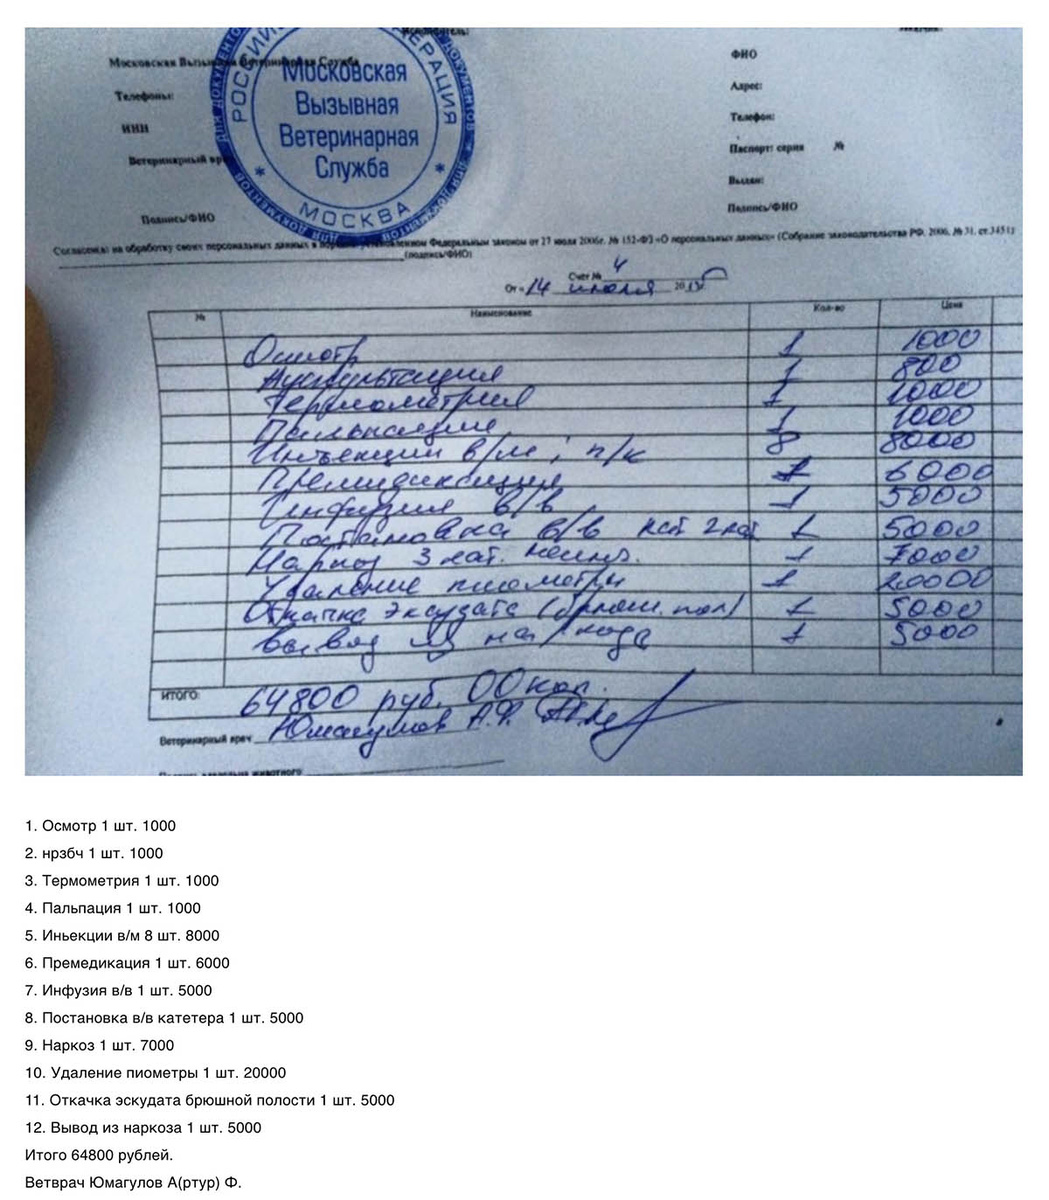 Московская Вызывная Ветеринарная Служба
Телефоны:
ИНН
Ветеринарный врач
Подпись/ФИО
РОССИЙСКАЯ ФЕДЕРАЦИЯ
ДЛЯ ДОКУМЕНТОВ
Московская
Вызывная
Ветеринарная
Служба
МОСКВА
ФИО
Адрес:
Телефон:
Паспорт: серия №
Выдан:
Подпись/ФИО
Согласен(а) на обработку своих персональных данных в порядке, установленном Федеральным законом от 27 июля 2006г. № 152-ФЗ «О персональных данных» (Собрание законодательства РФ, 2006, № 31, ст.3451)
(подпись/ФИО)
Счет № 4
От «14 июля 2015
№ Наименование Кол-во Цена
Осмотр 1 1000
Аускультация 1 800
Термометрия 1 1000
Пальпация 1 1000
Инъекции в/м; п/к 8 8000
Премедикация 1 6000
Инфузия в/в 1 5000
Постановка в/в кат 2 кат 1 5000
Наркоз 3 кат. 1 7000
Удаление пиометры 1 20000
Откачка эксудата (брюш. пол) 1 5000
Вывод из наркоза 1 5000
ИТОГО: 64800 руб. 00 коп.
Ветеринарный врач Юмагулов А.Ф.
1. Осмотр 1 шт. 1000
2. нрзбч 1 шт. 1000
3. Термометрия 1 шт. 1000
4. Пальпация 1 шт. 1000
5. Иньекции в/м 8 шт. 8000
6. Премедикация 1 шт. 6000
7. Инфузия в/в 1 шт. 5000
8. Постановка в/в катетера 1 шт. 5000
9. Наркоз 1 шт. 7000
10. Удаление пиометры 1 шт. 20000
11. Откачка эскудата брюшной полости 1 шт. 5000
12. Вывод из наркоза 1 шт. 5000
Итого 64800 рублей.
Ветврач Юмагулов А(ртур) Ф.